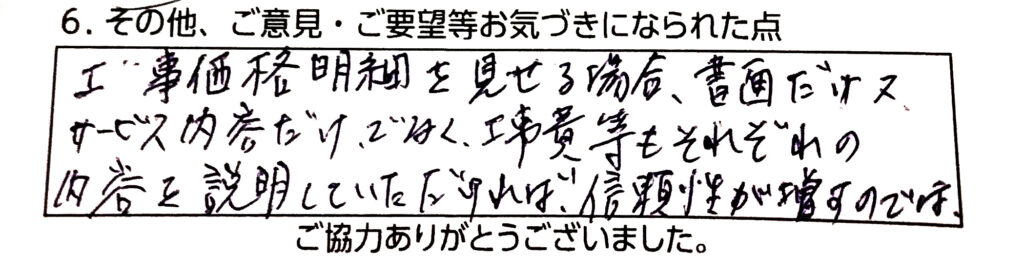 6. その他、ご意見・ご要望等お気づきになられた点
工事価格明細を見せる場合、書面だけス、
サービス内容だけ、でなく、工事費等もそれぞれの
内容を説明していただければ、信頼性が増すのでは、
ご協力ありがとうございました。